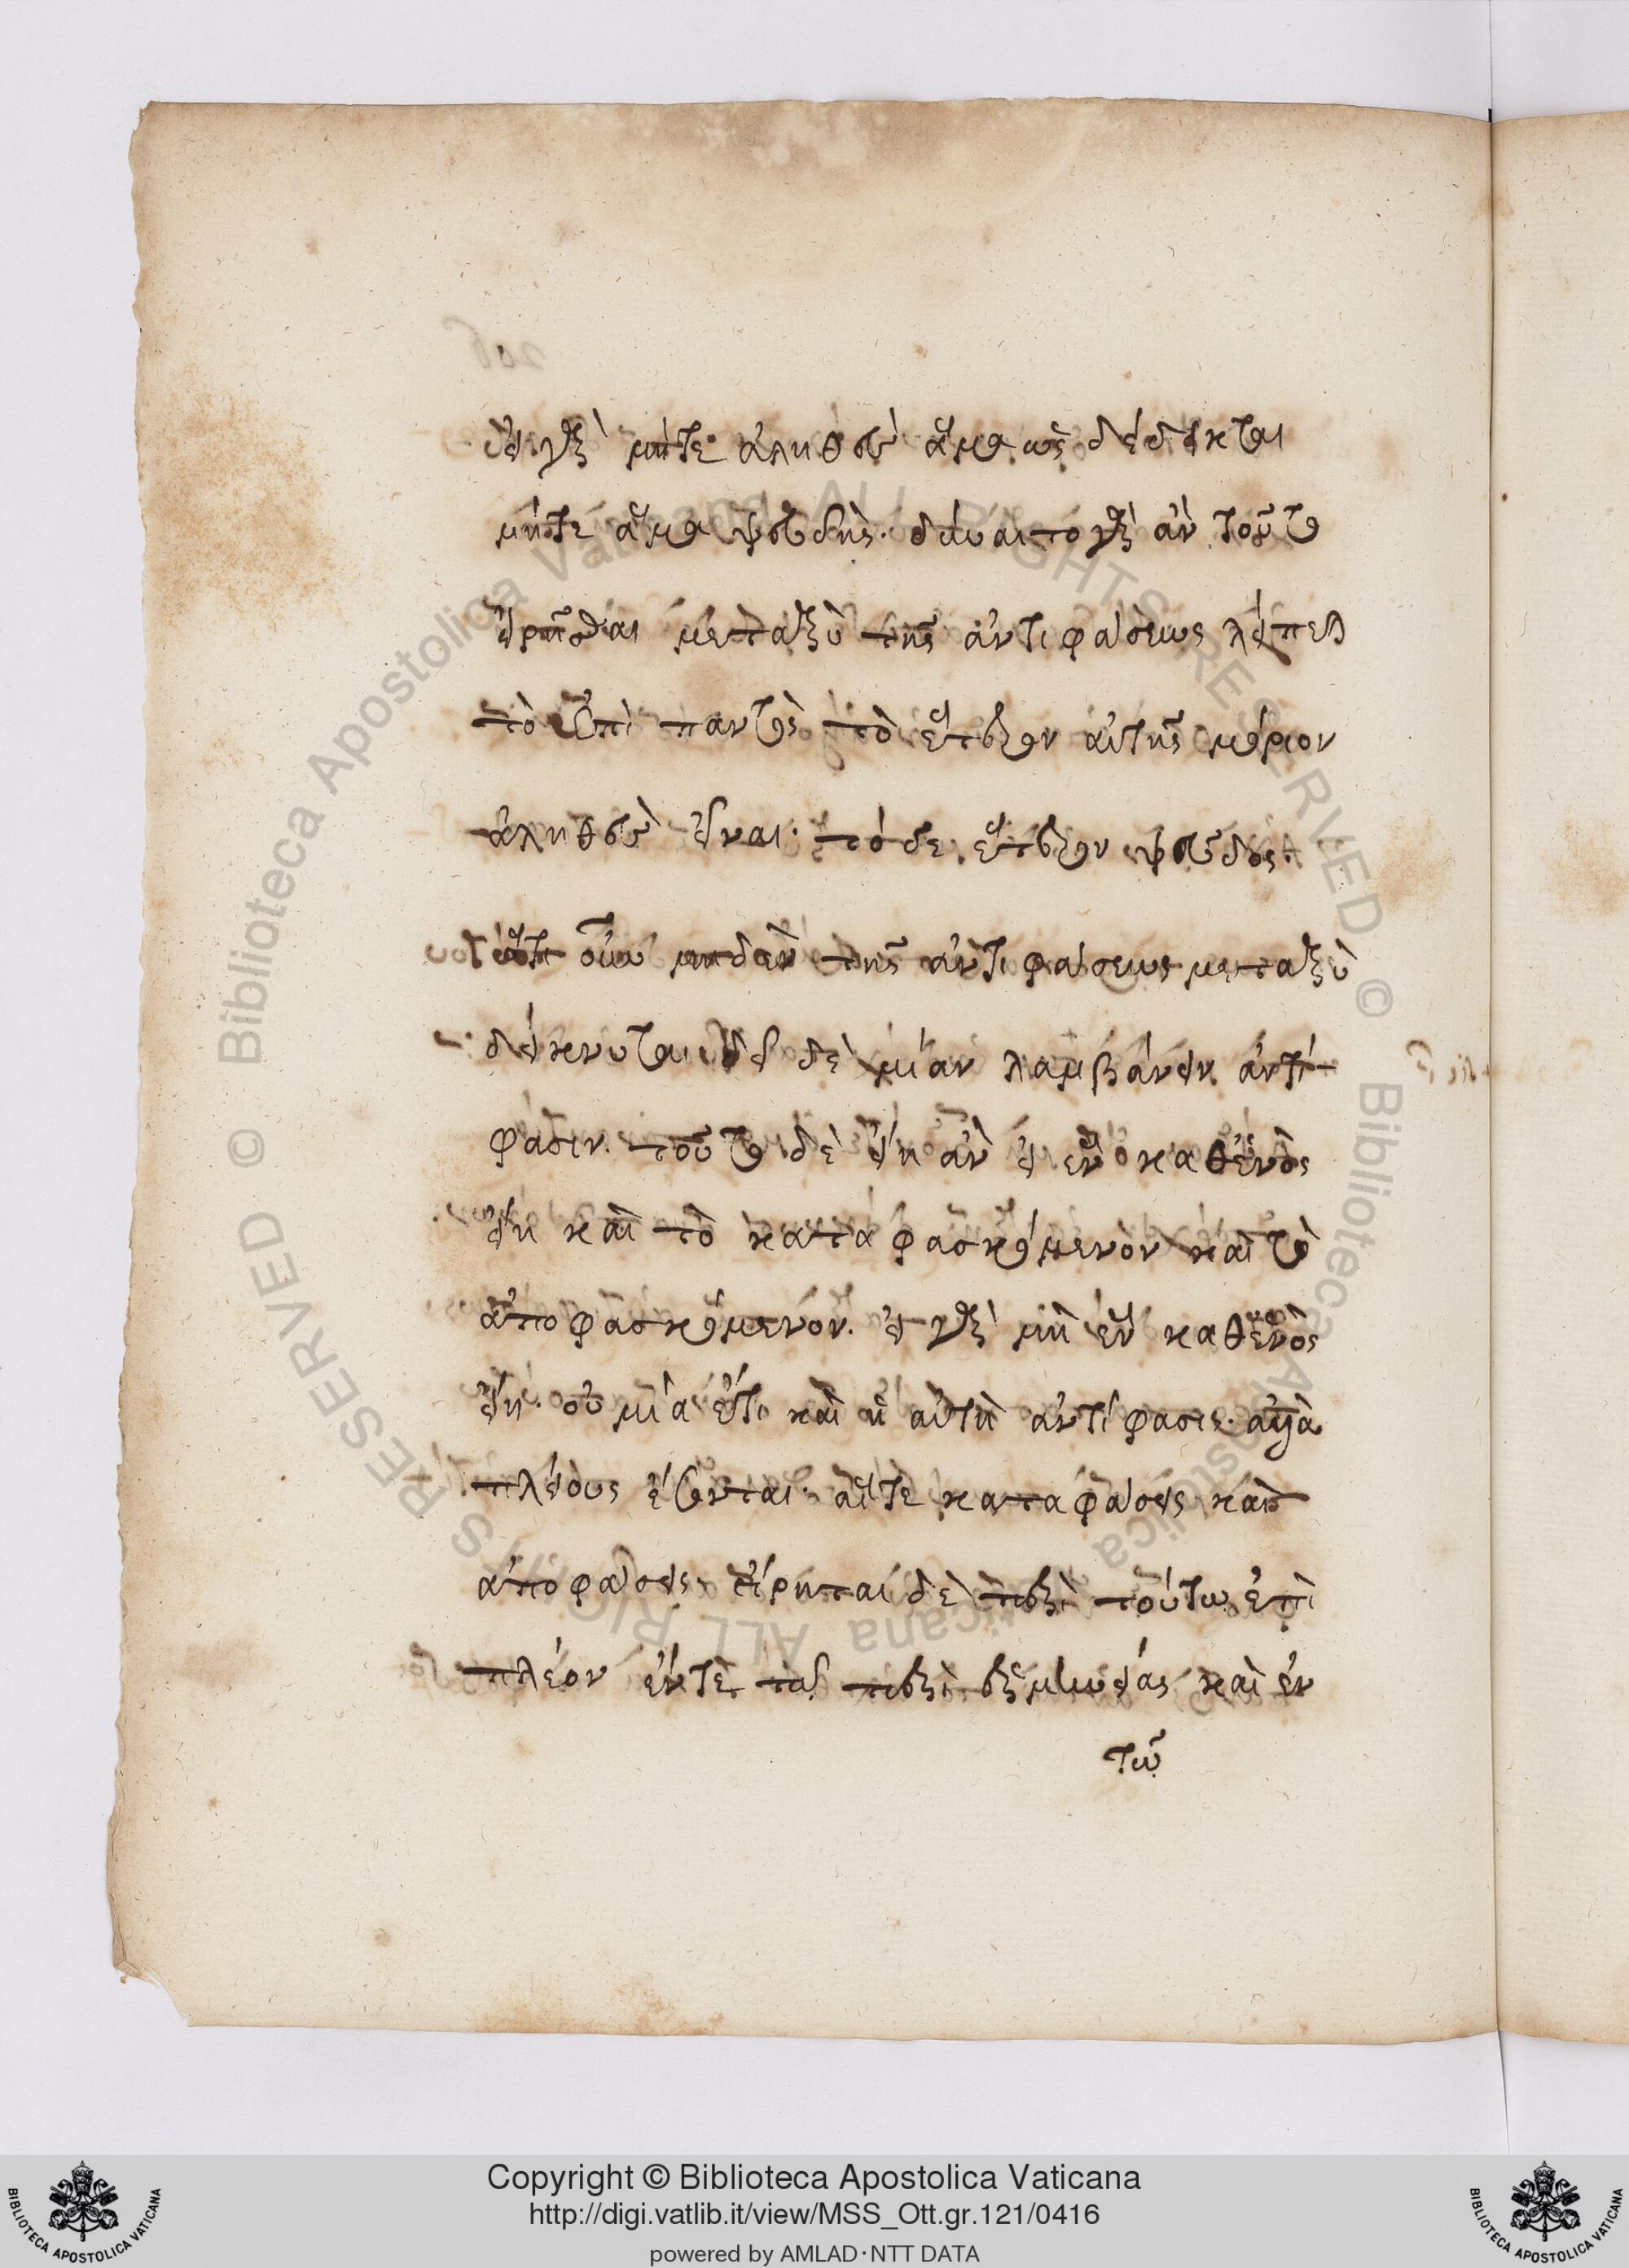 εἰ γὰρ μήτε ἀληθεύει ἅμα ὡς δέδεικται
μήτε ἅμα ψευδής. δύναιτο γὰρ ἂν τοῦτο
εἰρῆσθαι μεταξὺ τῆς ἀντιφάσεως λείπεται
τὸ ἐπὶ παντὸς τὸ ἕτερον αὐτῆς μόριον
ἀληθὲς εἶναι. τὸ δὲ ἕτερον ψεῦδος.
ὅτι οὖν μηδὲν τῆς ἀντιφάσεως μεταξὺ
δείκνυται. δεῖ δὲ μίαν λαμβάνειν ἀντί-
φασιν. τοῦτο δὲ εἴη ἂν εἰ ἓν καθ' ἑνὸς
εἴη καὶ τὸ καταφασκόμενον καὶ τὸ
ἀποφασκόμενον. εἰ γὰρ μὴ ἓν καθ' ἑνὸς
εἴη. οὐ μία ἔτι καὶ ἡ αὐτὴ ἀντίφασις. ἀλλὰ
πλείους ἔσονται. αἵ τε καταφάσεις καὶ
ἀποφάσεις. εἴρηται δὲ περὶ τούτων ἐπὶ
πλέον ἔν τε τῷ περὶ ἑρμηνείας καὶ ἐν
τῷ
Copyright © Biblioteca Apostolica Vaticana
http://digi.vatlib.it/view/MSS_Ott.gr.121/0416
powered by AMLAD·NTT DATA
BIBLIOTECA APOSTOLICA VATICANA
BIBLIOTECA APOSTOLICA VATICANA
© Biblioteca Apostolica Vaticana ALL RIGHTS RESERVED © Biblioteca Apostolica Vaticana ALL RIGHTS RESERVED